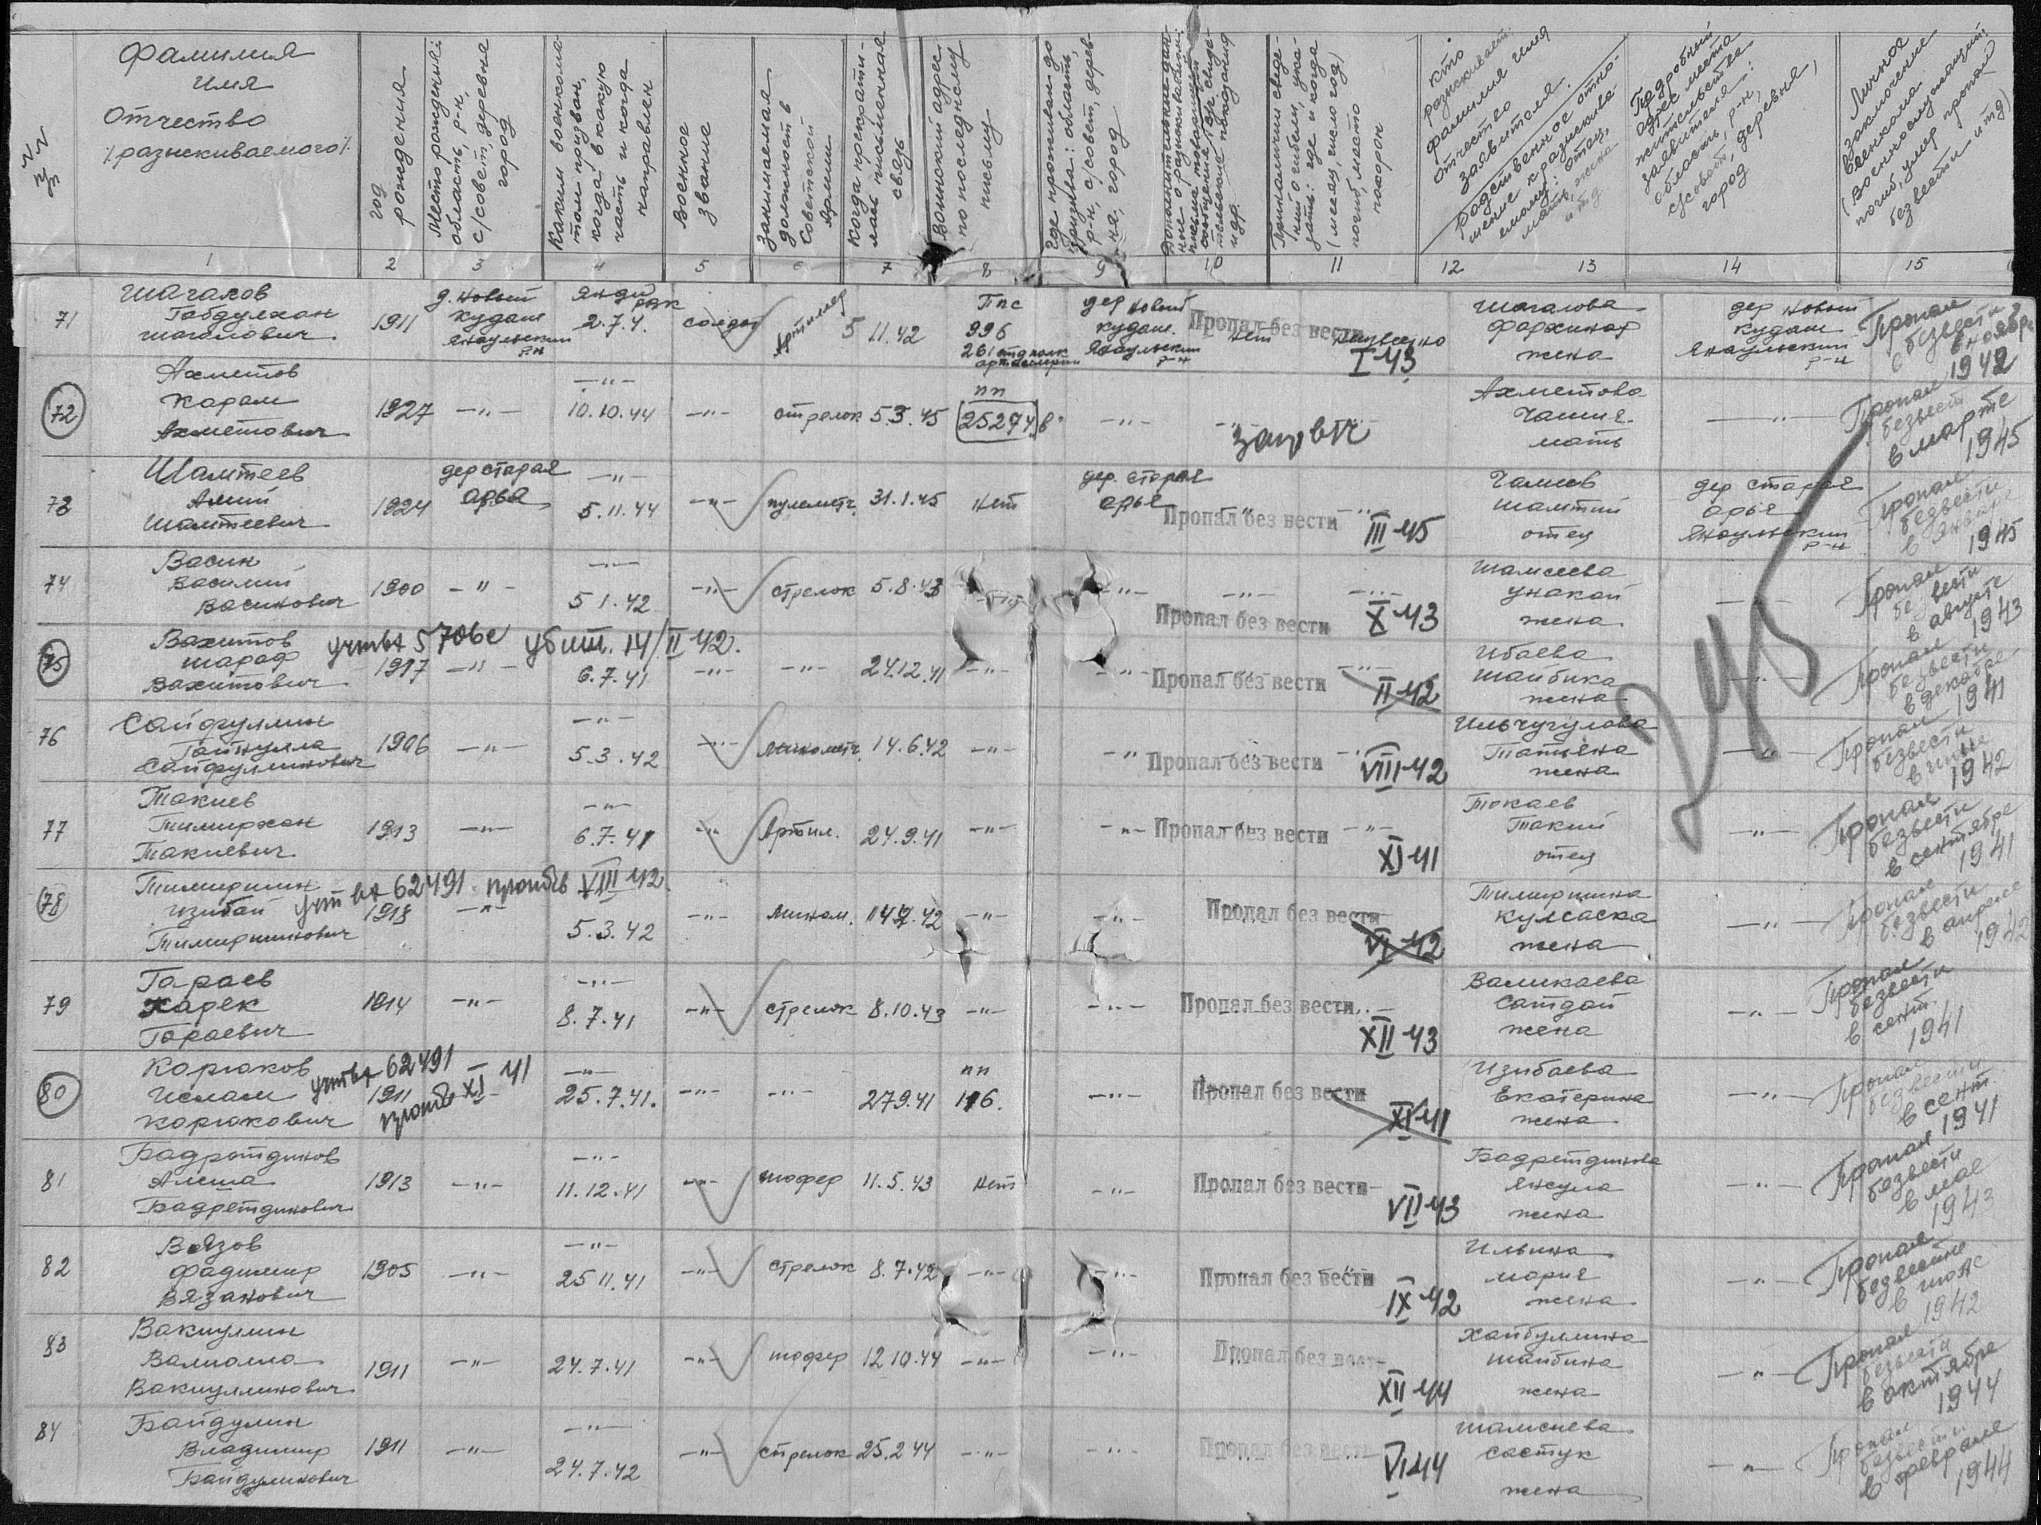 №№ п/п
Фамилия имя отчество /разыскиваемого/
год рождения
Место рождения: область, р-н, с/совет, деревня город
Каким военкоматом призван, когда в какую часть и когда направлен
Военное звание
Занимаемая должность в Советской Армии
Когда прекратилась письменная связь
Воинский адрес по последнему письму
Где проживал до призыва: область, р-н, с/совет, деревня, город
(месяц, число год) погиб, место похорон
Кто разыскивает: фамилия имя отчество заявителя.
Родственное отношение к разыскиваемому: отец, мать, жена и тд
Подробный адрес места жительства заявителя: область, р-н, с/совет, деревня, город
Личное заключение военкома (военнослужащий: погиб, умер пропал безвести и тд)
1 2 3 4 5 6 7 8 9 10 11 12 13 14 15
71 Шагалов Габдулхан Шагалович 1911 д. Новый Кудаш Янаульский р-н 2.7.4. солдат 5 11.42 Ппс 996 дер Новый Кудаш. Янаульский р-н Пропал без вести нет I 43 Шагалова жена дер Новый Кудаш Янаульский р-н Пропал безвести в ноябре 1942
72 Ахметов Карам Ахметович 1927 -"- -"- 10.10.44 -"- стрелок 5.3.45 пп 25274 в -"- Ахметова мать -"- Пропал безвест в марте 1945
73 Шамтеев Шамтеевич 1924 дер старая орья -"- 5.11.44 -"- пулеметч. 31.1.45 Нет дер. старая орья Пропал без вести -"- III 45 отец дер старая орья Янаульский р-н Пропал безвести в январе 1945
74 Васин Василий Васинович 1900 -"- -"- 5 1.42 -"- стрелок 5.8.43 -"- -"- Пропал без вести -"- X 43 Шамсеева Унакай жена -"- Пропал безвести в августе 1943
75 Вахитов Шарап Вахитович 1917 -"- убит. 14/II 42. 6.7.41 -"- -"- 24.12.41 -"- -"- Пропал без вести -"- II 42 Ибаева Шайбика жена -"- Пропал безвести в декабре 1941
76 Сайфуллин Гайнулла Сайфуллинович 1906 -"- -"- 5.3.42 -"- минометч. 14.6.42 -"- -"- Пропал без вести -"- VIII 42 Ильчугулова Татьяна жена -"- Пропал безвести в июне 1942
77 Такиев Тимирхан Такиевич 1913 -"- -"- 6.7.41 -"- Артил. 24.9.41 -"- -"- Пропал без вести -"- XI 41 Токаев Такий отец -"- Пропал безвести в сентябре 1941
78 Тимиршин Изибай Тимиршинович 1918 -"- 62491 VIII 42 5.3.42 -"- Мином. -"- -"- Пропал без вести VI 42 Тимиршина Кулсаска жена -"- Пропал безвести в апреле 1942
79 Гараев Харек Гараевич 1914 -"- -"- 8.7.41 -"- стрелок 8.10.43 -"- -"- Пропал без вести -"- XII 43 Валикаева Сатдай жена -"- Пропал безвести в сент 1941
80 Карюков Ислам Карюкович 1911 62491 XI 41 -"- 25.7.41. -"- -"- 27.9.41 пп -"- Пропал без вести XI 41 Изибаева Екатерина жена -"- Пропал безвести в сент 1941
81 Бадретдинов Бадретдинович 1913 -"- -"- 11.12.41 -"- шофер 11.5.43 Нет -"- Пропал без вести VII 43 Бадретдинова Янсула жена -"- Пропал безвести в мае 1943
82 Вязов Фадимир Вязанович 1905 -"- -"- 25 11.41 -"- стрелок 8.7.42 -"- -"- Пропал без вести IX 42 Ильина Мария жена -"- Пропал безвести в июле 1942
83 Вакиулин Валиолла Вакиуллинович 1911 -"- 24.7.41 -"- шофер 12 10.44 -"- -"- Пропал без вести XII 44 Хайбуллина Шайбина жена -"- Пропал безвести в октябре 1944
84 Байдулин Владимир Байдулинович 1911 -"- -"- 24.7.42 -"- стрелок 25.2.44 -"- -"- Пропал без вести VI 44 Шамсиева Састук жена -"- Пропал безвести в феврале 1944